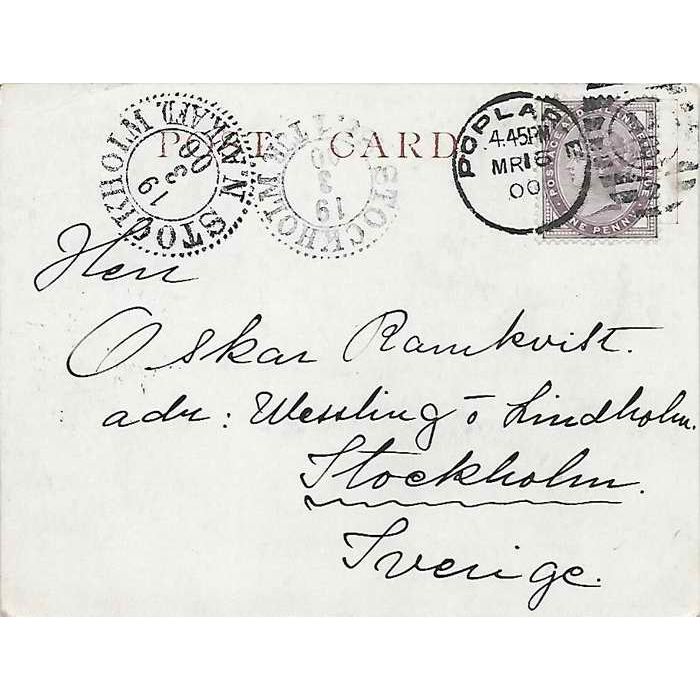 POST CARD
STOCKHOLM
19 3 00
STOCKHOLM
19 3 00
POPLAR E
4.45PM
MR 16
00
ONE PENNY
Herr
Oskar Ramkvist.
adr: Wessling o Lindholm.
Stockholm.
Sverige.